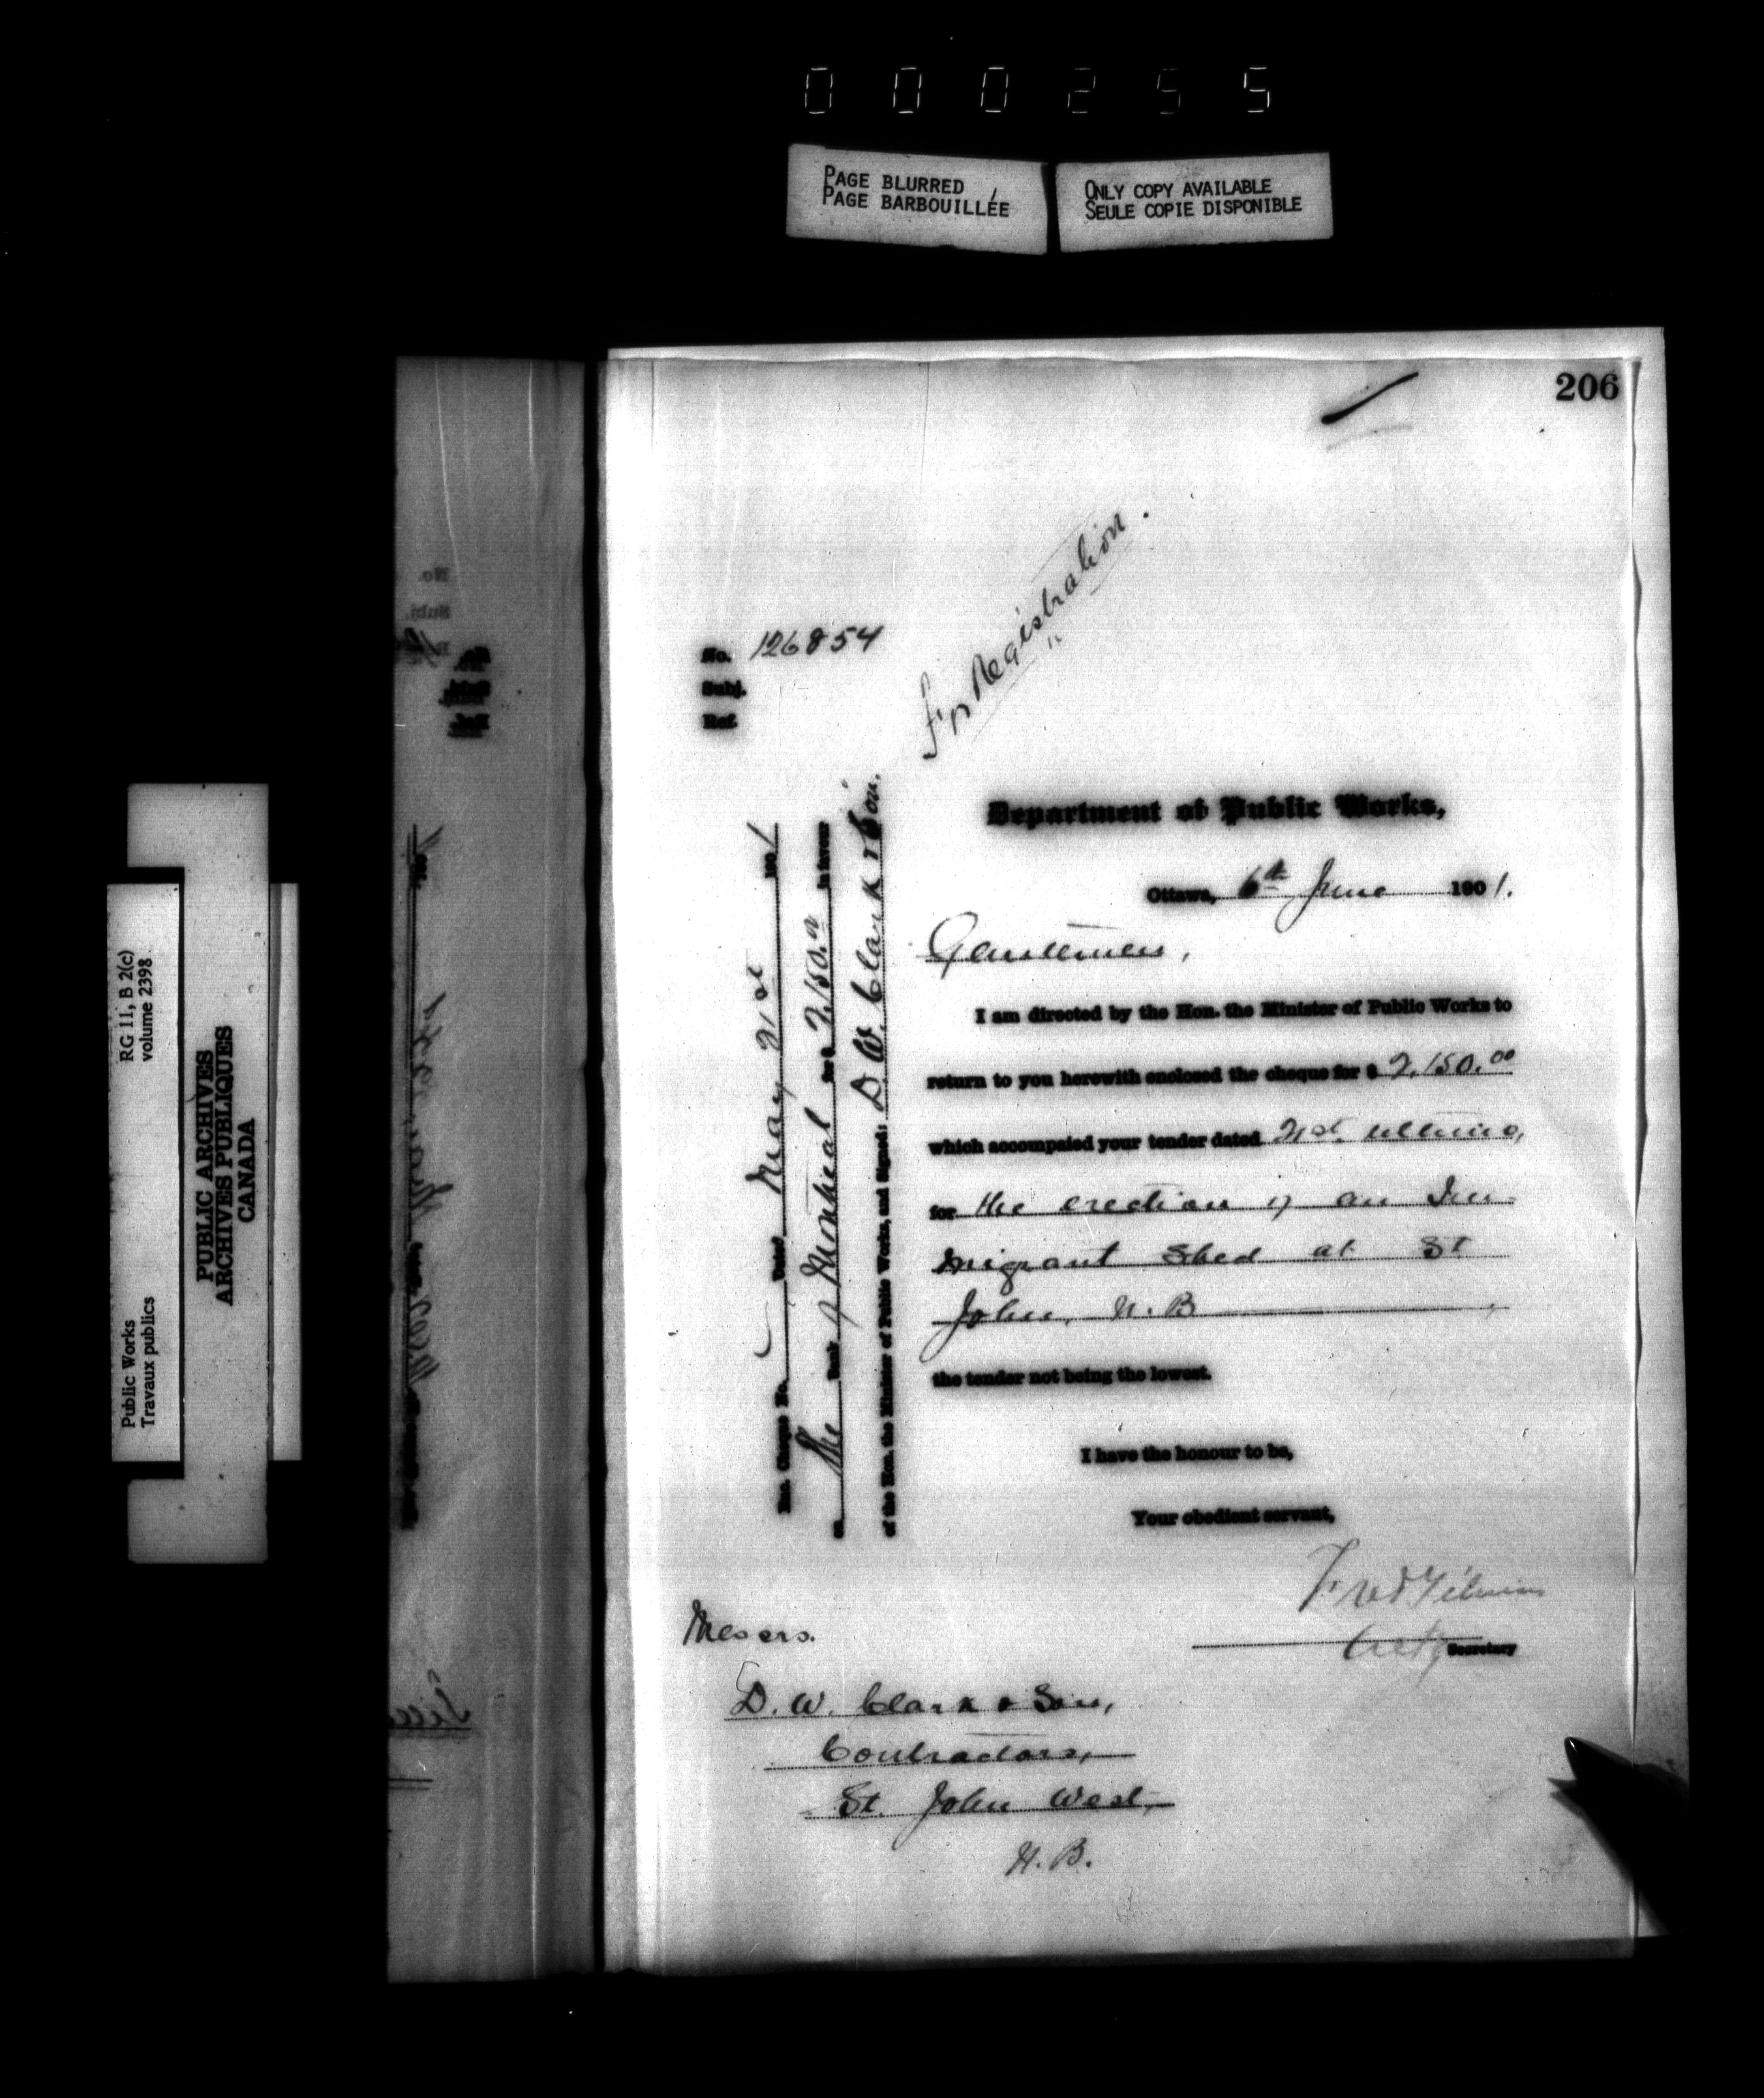 000255
PAGE BLURRED
PAGE BARBOUILLÉE
ONLY COPY AVAILABLE
SEULE COPIE DISPONIBLE
206
For Registration.
No. 126854
Subj.
Ref.
Department of Public Works,
Ottawa, 6th June 1901.
Gentlemen,
I am directed by the Hon. the Minister of Public Works to
return to you herewith enclosed the cheque for $ 2,150.00
which accompaied your tender dated 21st ultimo,
for the erection of an Im-
migrant Shed at St
John, N.B
the tender not being the lowest.
I have the honour to be,
Your obedient servant,
Actg Secretary
Enc. Cheque No. Dated May 21st 1901
on The Bank of Montreal for $ 2,150.00 in favour
of the Hon. the Minister of Public Works, and Signed: D.W. Clark & Son.
Messrs.
D. W. Clark & Son,
Contractors,
St. John West,
N.B.
RG 11, B 2(c)
volume 2398
Public Works
Travaux publics
PUBLIC ARCHIVES
ARCHIVES PUBLIQUES
CANADA